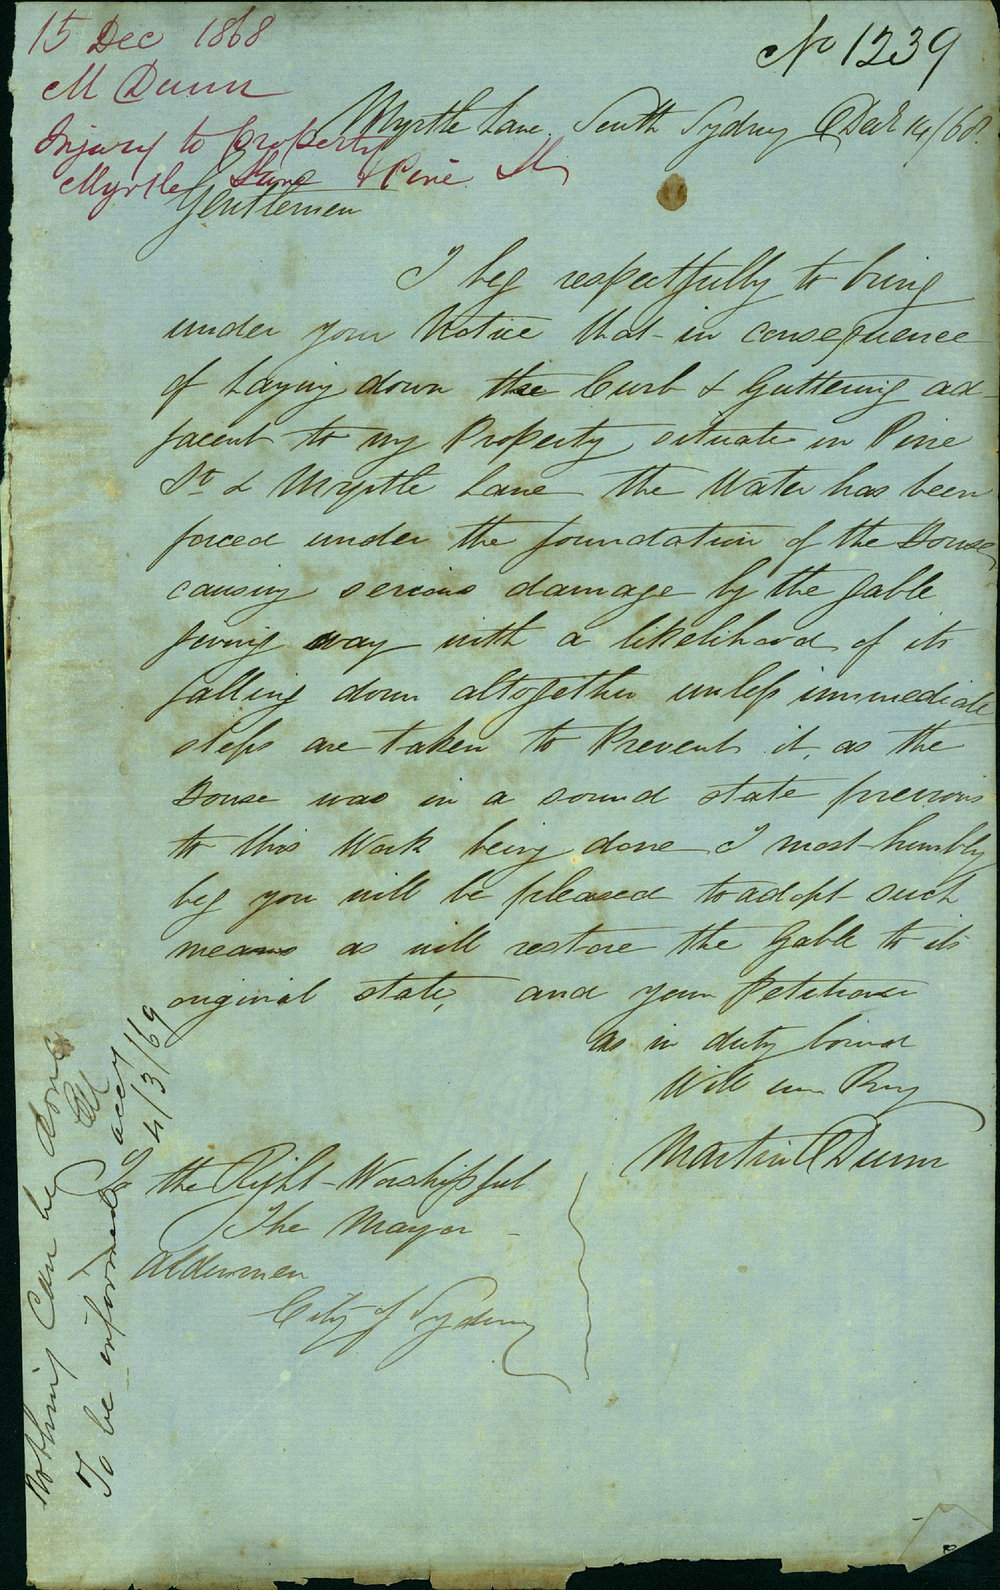 15 Dec 1868
M Dunn
Injury to Property
Myrtle Lane & Pine St
No 1239
Myrtle Lane South Sydney Decr 14/68.
Gentlemen
I beg respectfully to bring
under your Notice that in consequence
of Laying down the Curb & Guttering ad-
jacent to my Property situate in Pine
St & Myrtle Lane the Water has been
forced under the foundation of the House
causing serious damage by the gable
giving way with a likelihood of its
falling down altogether unless immediate
steps are taken to Prevent it, as the
House was in a sound state previous
to this Work being done I most humbly
beg you will be pleased to adopt such
means as will restore the Gable to its
original state, and your Petitioner
as in duty bound
Will ever Pray
Martin Dunn
To the Right Worshipful
The Mayor
& Aldermen
City of Sydney
Nothing Can be done
To be informed accy
4/3/69